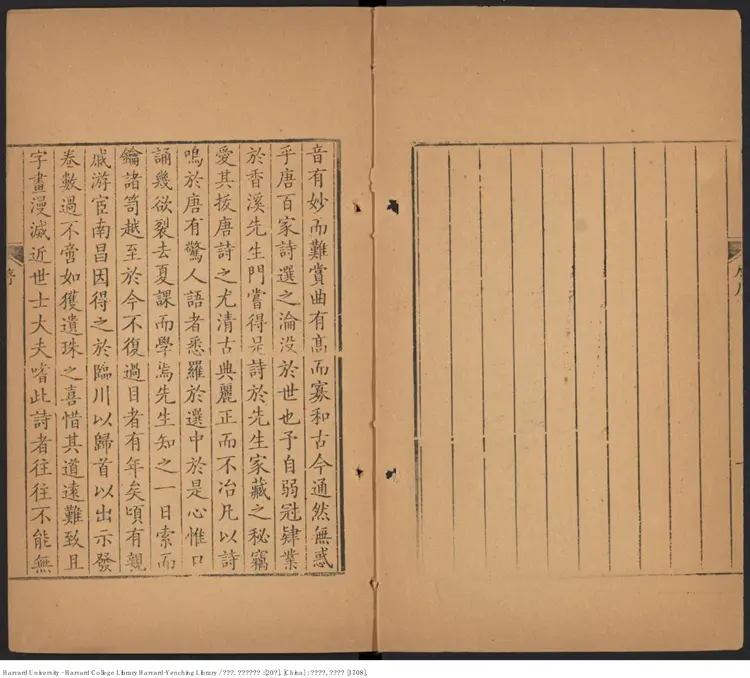 音有妙而難賞曲有髙而寡和古今通然無惑
乎唐百家詩選之淪没於世也予自弱冠肄業
於香溪先生門嘗得是詩於先生家藏之秘竊
愛其拔唐詩之尤清古典麗正而不冶凡以詩
鳴於唐有驚人語者悉羅於選中於是心惟口
誦幾欲裂去夏課而學焉先生知之一日索而
鑰諸笥越至於今不復過目者有年矣頃有親
戚游宦南昌因得之於臨川以歸首以出示發
卷數過不啻如獲遺珠之喜惜其道遠難致且
字畫漫滅近世士大夫嗜此詩者往往不能無
Harvard University - Harvard College Library Harvard-Yenching Library / ???. ?????? :[20?]. [China] : ????, ???? [1708].